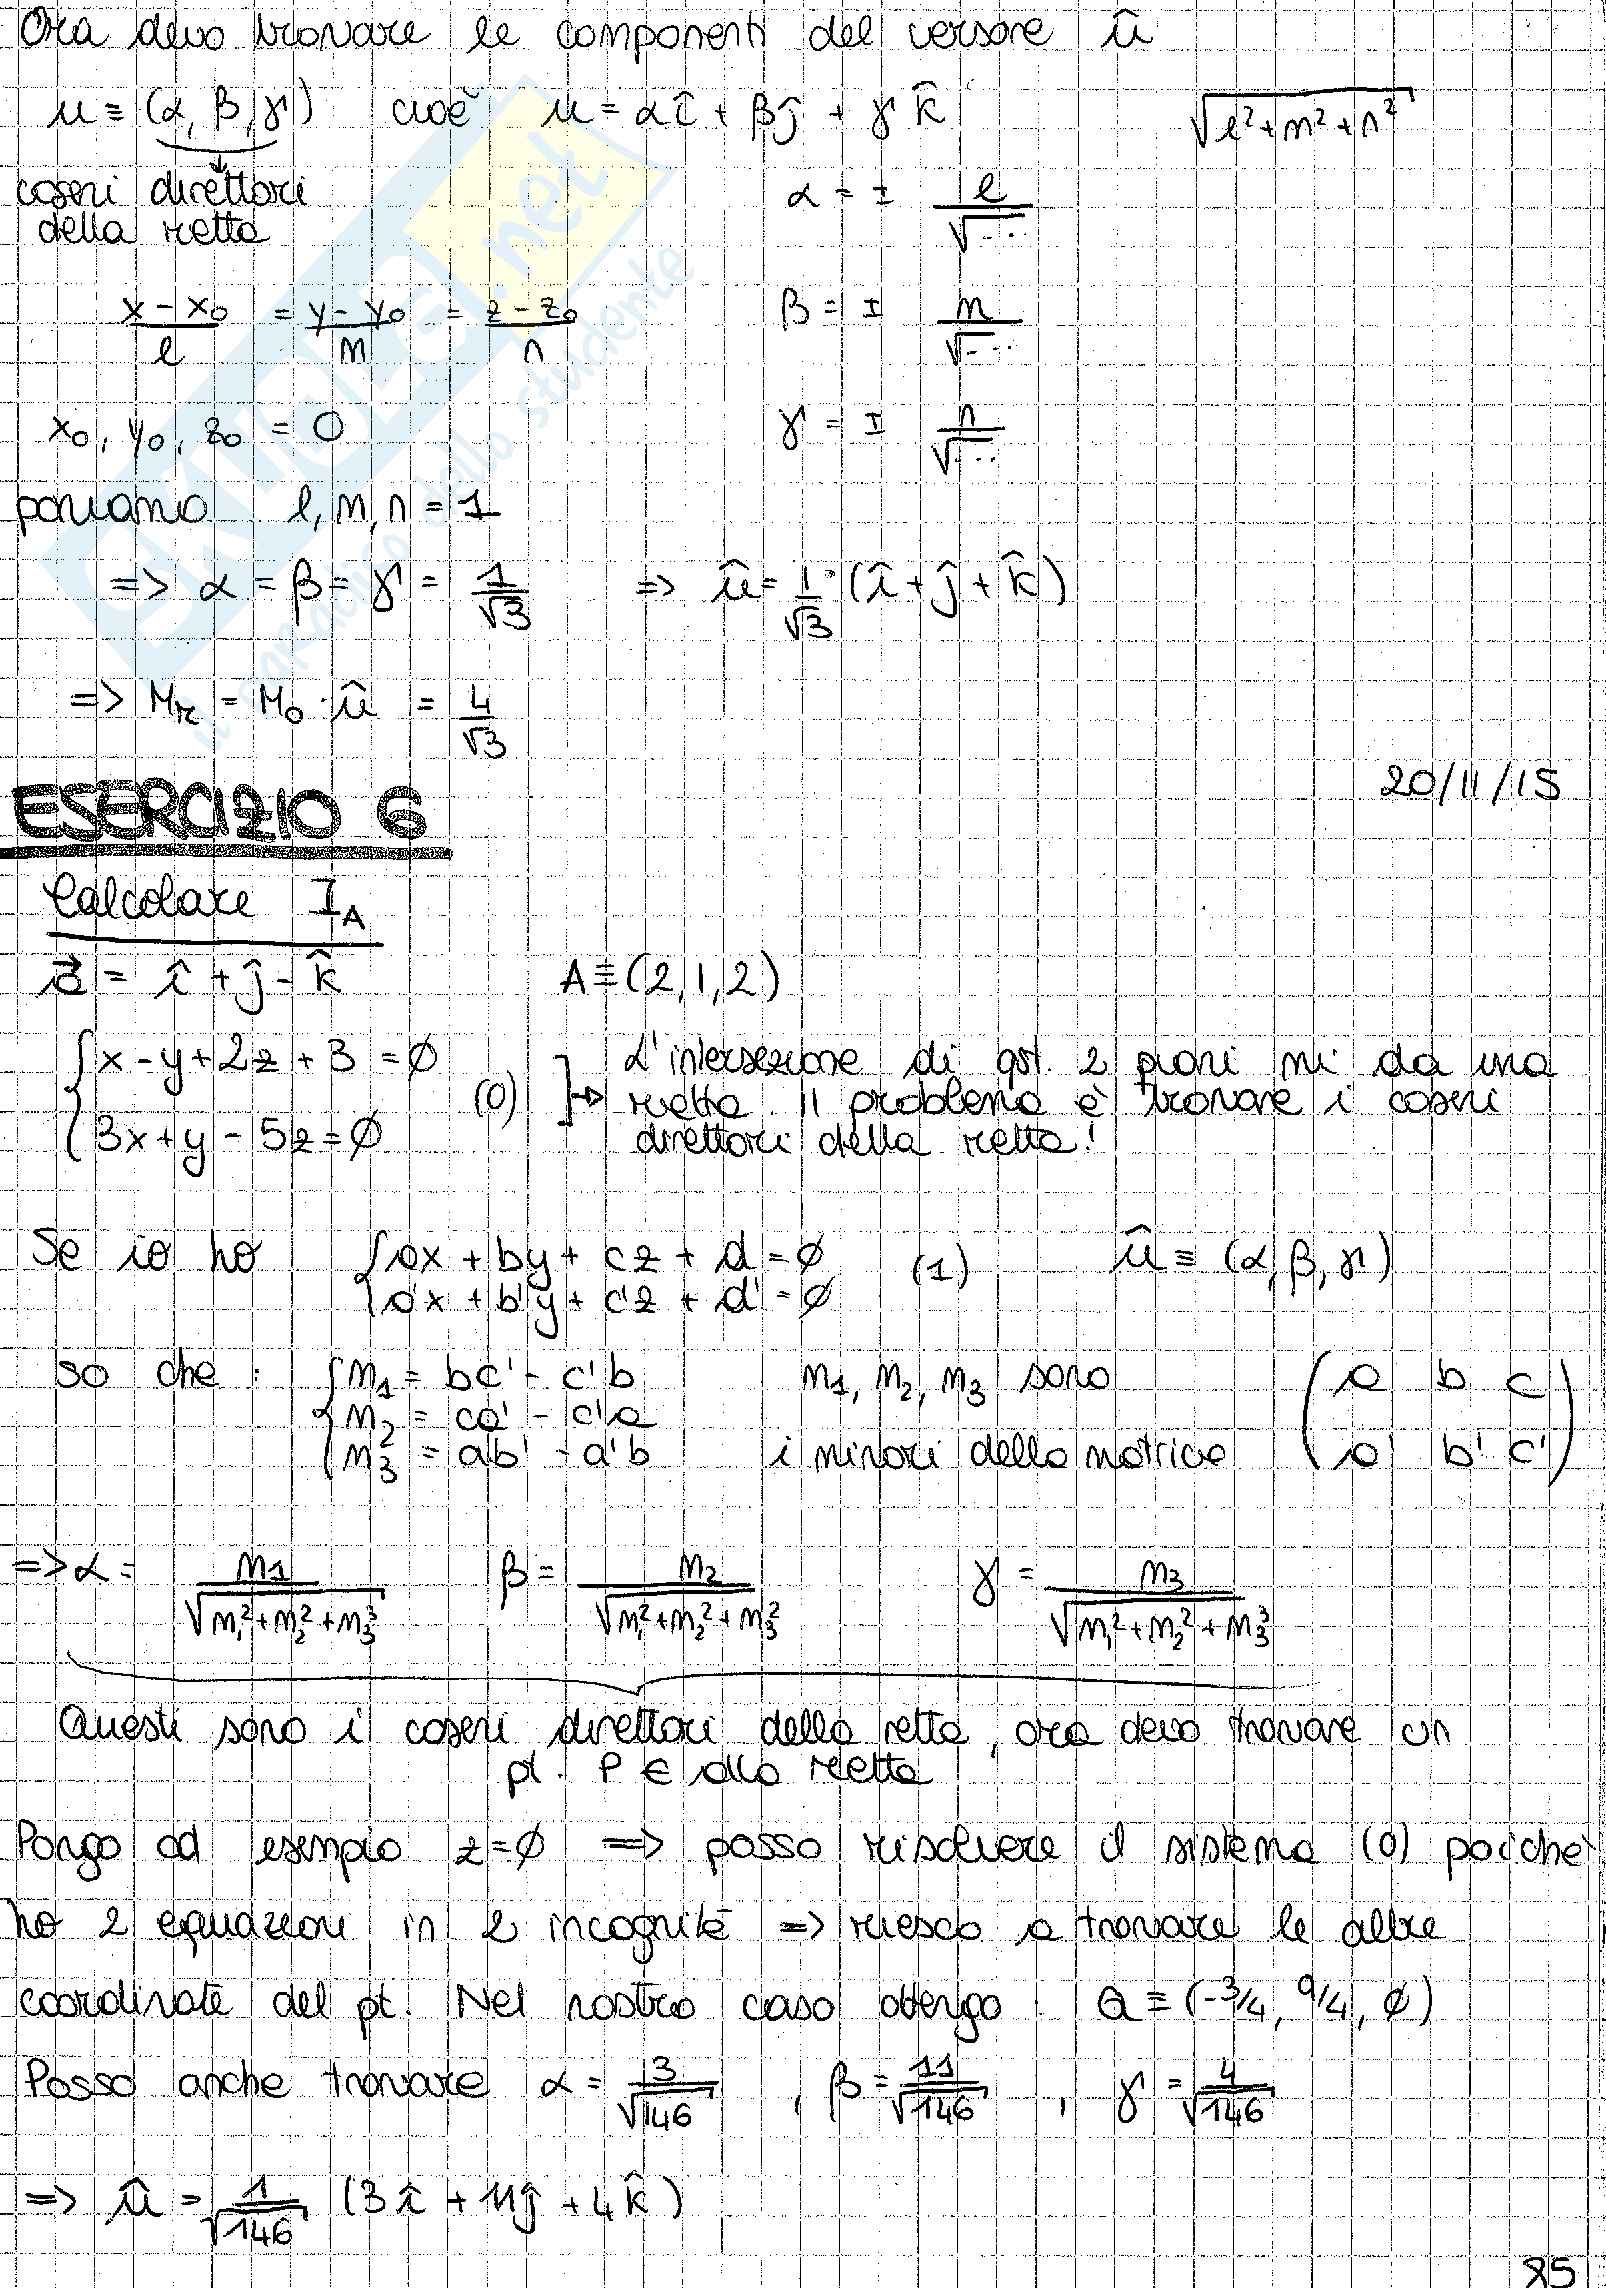 Ora devo trovare le componenti del versore û
u ≡ (α, β, γ) cioè u = αî + βĵ + γk̂ √(l²+m²+n²)
coseni direttori
della retta
α = ± l/√...
(x-x₀)/l = (y-y₀)/m = (z-z₀)/n β = ± m/√...
x₀, y₀, z₀ = 0 γ = ± n/√...
poniamo l, m, n = 1
=> α = β = γ = 1/√3 => û = 1/√3 · (î + ĵ + k̂)
=> Mr = M₀ · û = 4/√3
20/11/15
ESERCIZIO 6
Calcolare I_A
a⃗ = î + ĵ - k̂ A ≡ (2, 1, 2)
{x - y + 2z + 3 = ∅
{3x + y - 5z = ∅
(0)
L'intersezione di qst. 2 piani mi da una
retta. Il problema è trovare i coseni
direttori della retta!
Se io ho {ax + by + cz + d = ∅ (1) û ≡ (α, β, γ)
{a'x + b'y + c'z + d' = ∅
so che: {m₁ = bc' - c'b m₁, m₂, m₃ sono (a b c
{m₂ = ca' - c'a
{m₃ = ab' - a'b i minori della matrice a' b' c')
=> α = m₁/√(m₁²+m₂²+m₃³) β = m₂/√(m₁²+m₂²+m₃²) γ = m₃/√(m₁²+m₂²+m₃³)
Questi sono i coseni direttori della retta, ora devo trovare un
pt. P ∈ alla retta
Pongo ad esempio z=∅ => posso risolvere il sistema (0) poichè
ho 2 equazioni in 2 incognite => riesco a trovare le altre
coordinate del pt. Nel nostro caso ottengo Q ≡ (-3/4, 9/4, ∅)
Posso anche trovare α = 3/√146, β = 11/√146, γ = 4/√146
=> û = 1/√146 (3î + 11ĵ + 4k̂)
85